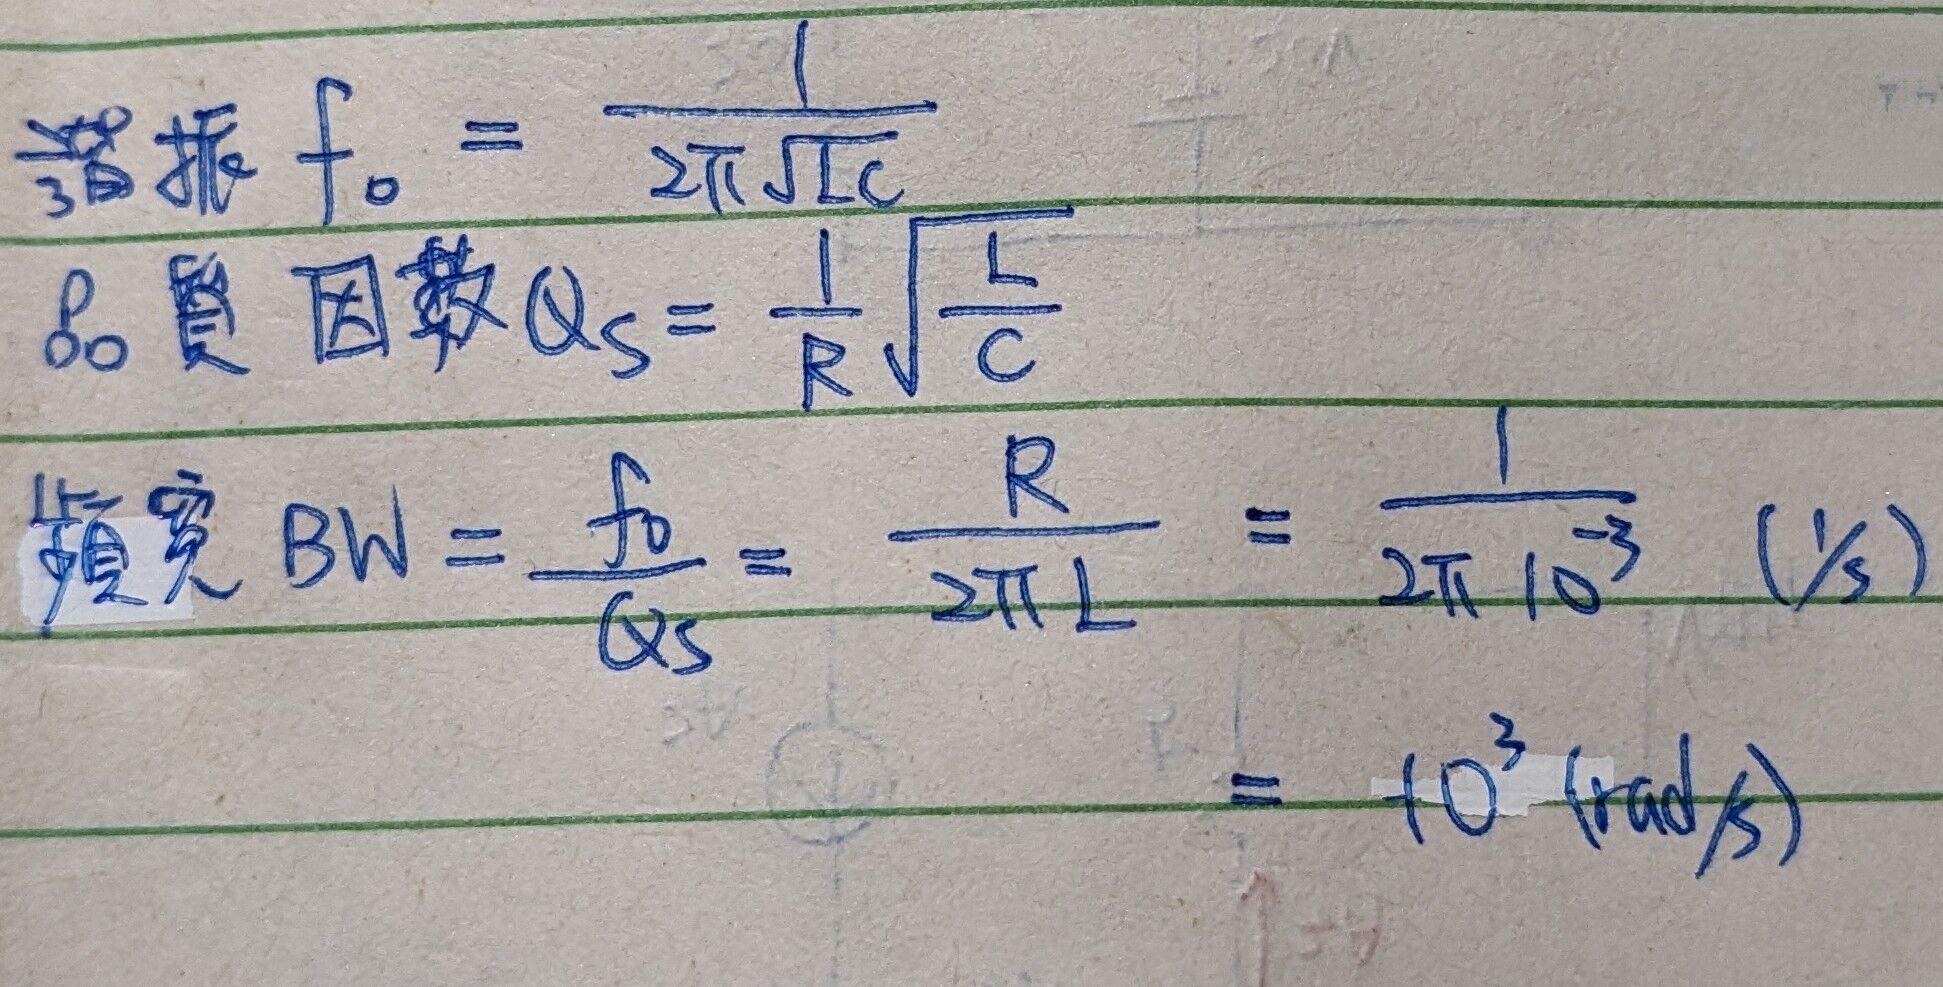 諧振 f₀ = 1/(2π√(LC))
品質因數 Qs = (1/R)√(L/C)
頻寬 BW = f₀/Qs = R/(2πL) = 1/(2π 10⁻³) (1/s)
= 10³ (rad/s)